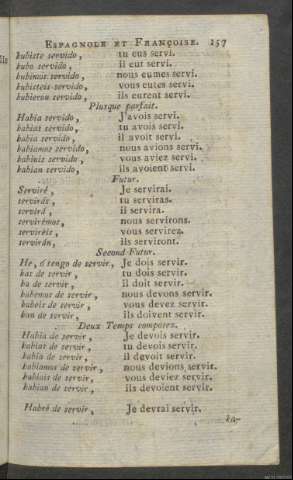 ESPAGNOLE ET FRANÇOISE. 157
hubiste servido, tu eus servi.
hubo servido, il eut servi.
hubimos servido, nous eumes servi.
hubisteis servido, vous eutes servi.
hubieron servido, ils eurent servi.
Plusque parfait.
Habia servido, J'avois servi.
habias servido, tu avois servi.
habia servido, il avoit servi.
habiamos servido, nous avions servi.
habiais servido, vous aviez servi.
habian servido, ils avoient servi.
Futur.
Serviré, Je servirai.
servirás, tu serviras.
servirá, il servira.
servirémos, nous servirons.
serviréis, vous servirez.
servirán, ils serviront.
Second Futur.
He, ó tengo de servir, Je dois servir.
has de servir, tu dois servir.
ha de servir, il doit servir.
habemos de servir, nous devons servir.
habeis de servir, vous devez servir.
han de servir, ils doivent servir.
Deux Temps composez.
Habia de servir, Je devois servir.
habias de servir, tu devois servir.
habia de servir, il devoit servir.
habiamos de servir, nous devions servir.
habiais de servir, vous deviez servir.
habian de servir, ils devoient servir.
Habré de servir, Je devrai servir.
ha-